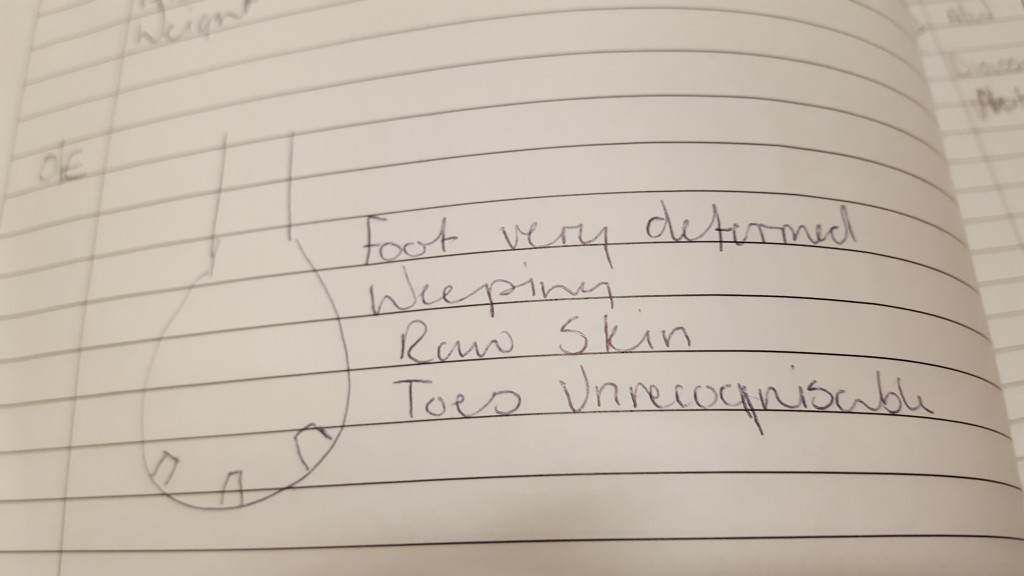 Weight
O/E
Foot very deformed
Weeping
Raw Skin
Toes Unrecognisable